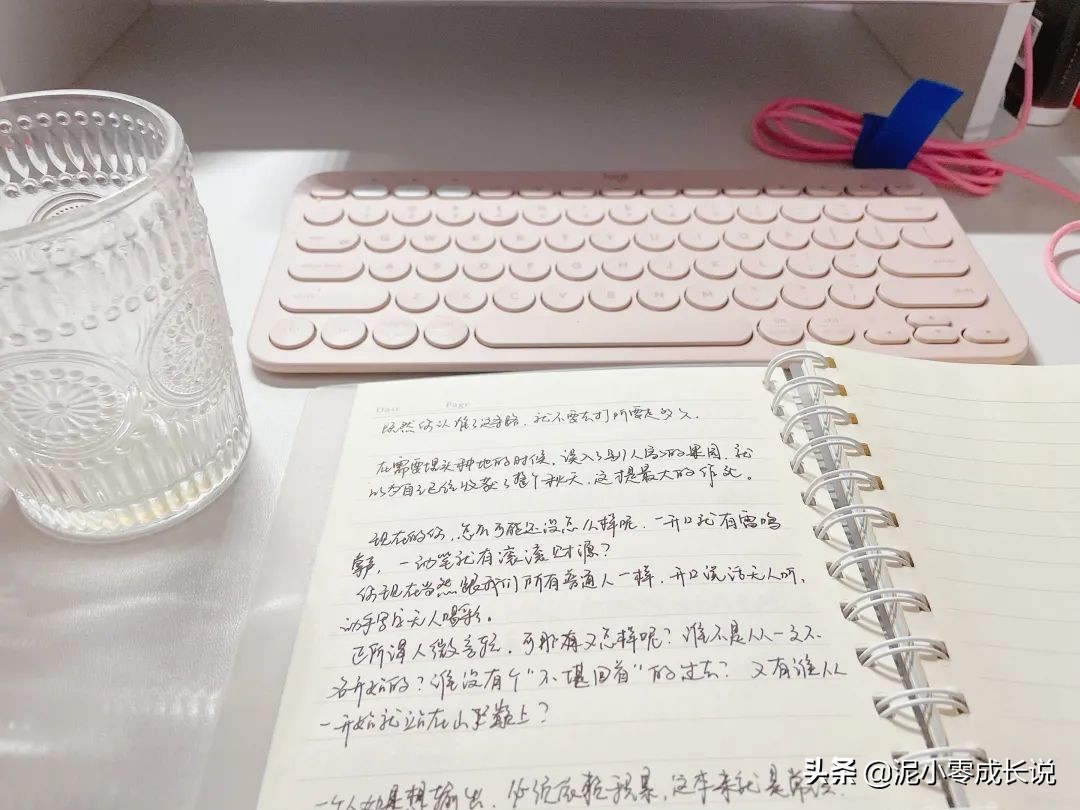 Date Page
既然你认准了这条路，就不要去打听要走多久。
在需要埋头种地的时候，误入了别人家的果园，就
以为自己已经收获了整个秋天，这才是最大的作死。
现在的你，怎么可能还没怎么样呢，一开口就有雷鸣
掌声，一动笔就有滚滚财源？
你现在当然跟我们所有普通人一样，开口说话无人听，
动手写字无人喝彩。
正所谓人微言轻，可那有又怎样呢？谁不是从一文不
名开始的？谁没有个"不堪回首"的过去？又有谁从
一开始就站在山巅上？
一个人如果想输出，必须依赖积累，这本来就是常
logi
头条 @泥小零成长说